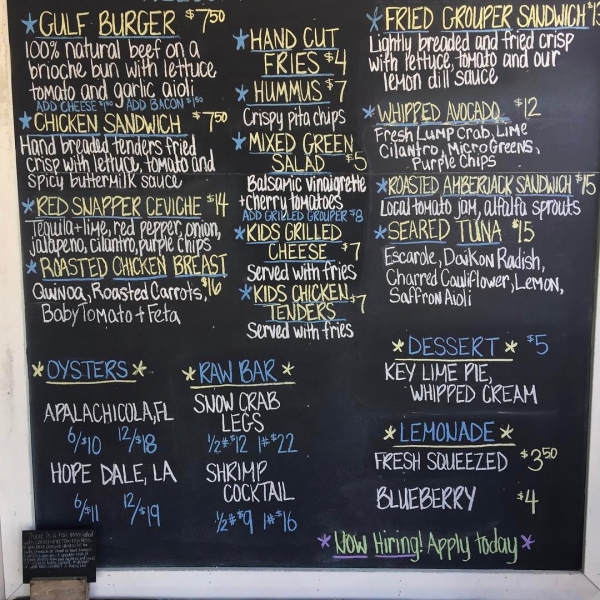 GULF BURGER $7.50
100% natural beef on a
brioche bun with lettuce
tomato and garlic aioli
ADD CHEESE $1.50 ADD BACON $1.50
CHICKEN SANDWICH $7.50
Hand breaded tenders fried
crisp with lettuce, tomato and
spicy buttermilk sauce
RED SNAPPER CEVICHE $14
Tequila + lime, red pepper, onion,
jalapeno, cilantro, purple chips
ROASTED CHICKEN BREAST
Quinoa, Roasted Carrots, $16
Baby Tomato + Feta
HAND CUT
FRIES $4
HUMMUS $7
Crispy pita chips
MIXED GREEN
SALAD $5
Balsamic vinaigrette
+ cherry tomatoes
ADD GRILLED GROUPER $8
KIDS GRILLED
CHEESE $7
Served with fries
KIDS CHICKEN
TENDERS $7
Served with fries
FRIED GROUPER SANDWICH
Lightly breaded and fried crisp
with lettuce, tomato and our
lemon dill sauce
WHIPPED AVOCADO $12
Fresh Lump Crab, Lime
Cilantro, MicroGreens,
Purple Chips
ROASTED AMBERJACK SANDWICH $15
Local tomato jam, alfalfa sprouts
SEARED TUNA $15
Escarole, Daikon Radish,
Charred Cauliflower, Lemon,
Saffron Aioli
OYSTERS
APALACHICOLA, FL
6/$10 12/$18
HOPE DALE, LA
6/$11 12/$19
RAW BAR
SNOW CRAB
LEGS
1/2# $12 1# $22
SHRIMP
COCKTAIL
1/2# $9 1# $16
DESSERT $5
KEY LIME PIE,
WHIPPED CREAM
LEMONADE
FRESH SQUEEZED $3.50
BLUEBERRY $4
Now Hiring! Apply today